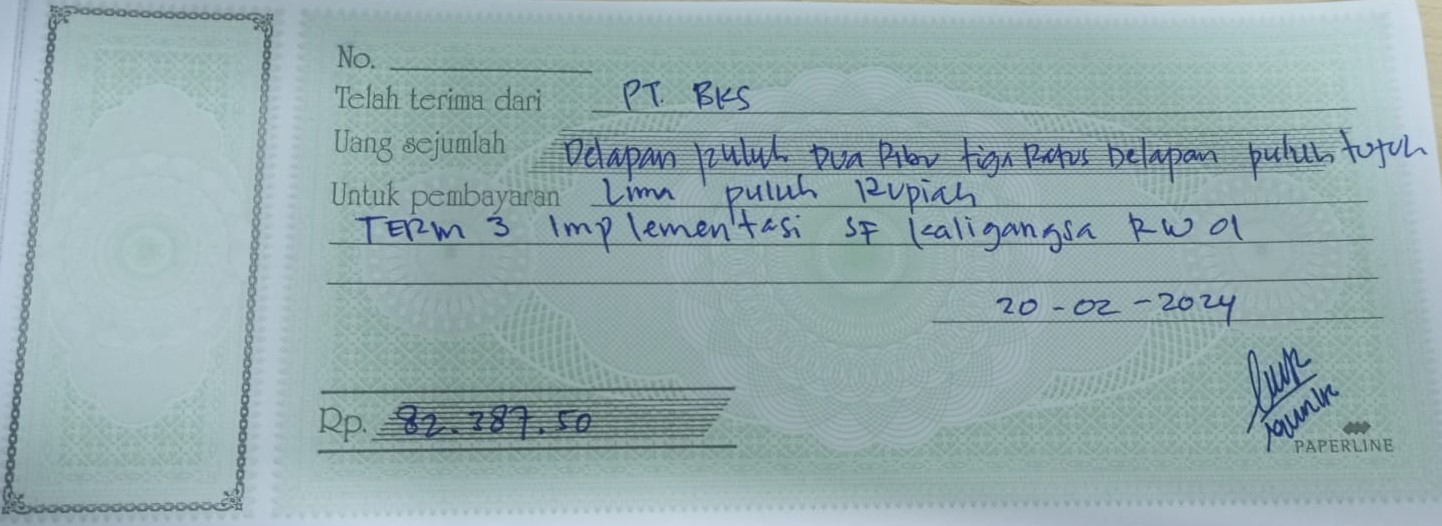 No.
Telah terima dari PT. BKS
Uang sejumlah Delapan puluh Dua Ribu tiga Ratus Delapan puluh tujuh
Untuk pembayaran Lima puluh Rupiah
TERM 3 Implementasi SF kaligangsa RW 01
20-02-2024
Rp. 82.387.50
PAPERLINE